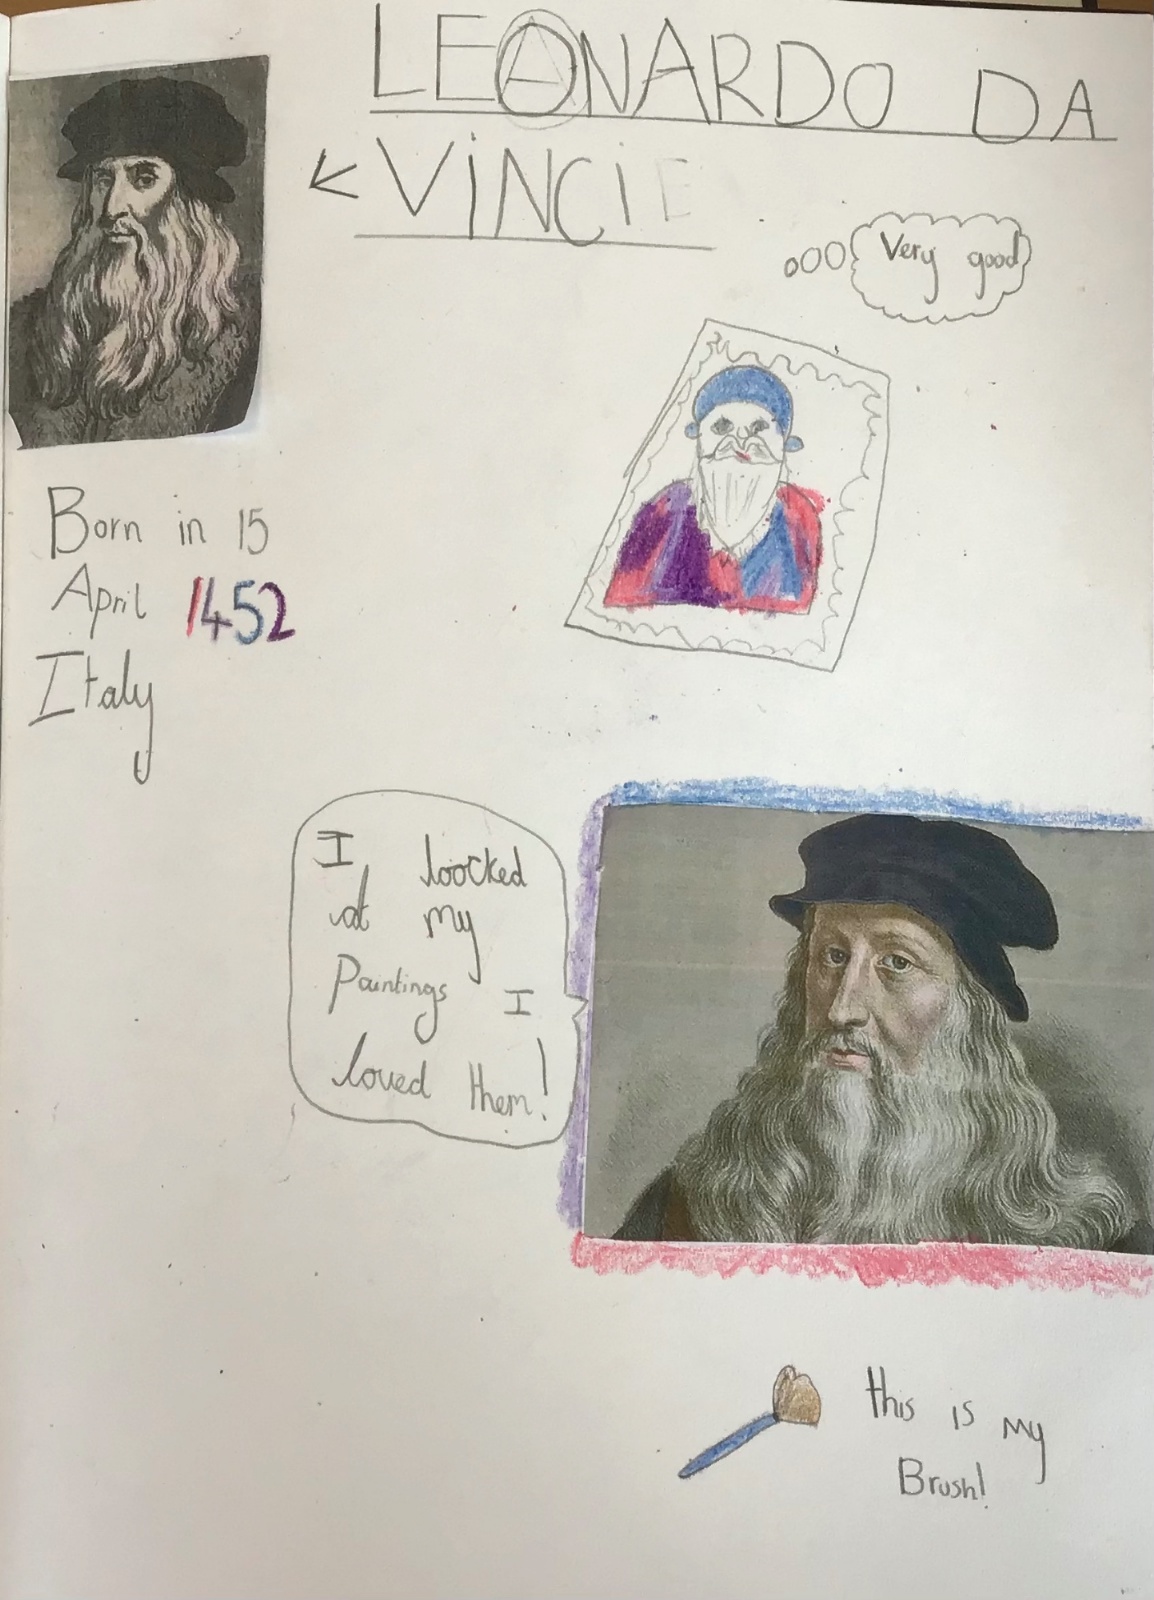 LEONARDO DA
VINCIE
Very good
Born in 15
April 1452
Italy
I loocked
at my
Paintings I
loved them!
this is my
Brush!